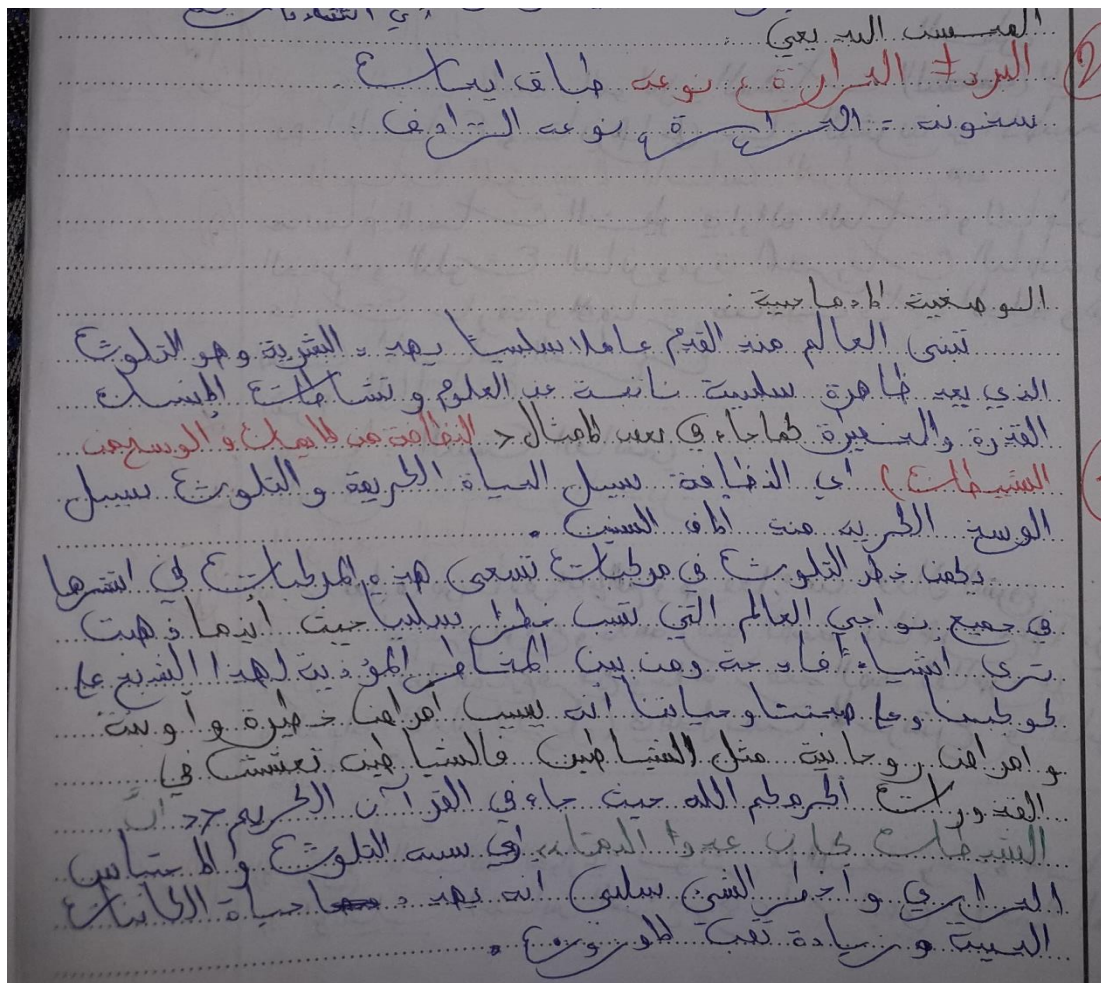 المحسن البديعي :
2 البرد ≠ الحرارة، نوعه طباق ايجاب
سخونة = الحرارة، نوعه الترادف .
الوضعية الادماجية :
العالم منذ القدم عاملا سلبيا يهدد البشرية وهو التلوث
الذي يعد ظاهرة سلبية عن العلوم و نشاطات الإنسان
القذرة و كما جاء في بعض الامثال > النظافة من الايمان و الوسخ من
الشيطان) اي النظافة سبيل الحياة الكريمة و التلوث سبيل
منذ الاف السنين .
يكمن خطر التلوث في مركبات تسعى هذه المركبات في
في جميع نواحي العالم التي سلبيا حيث أينما ذهبت
ترى أشياء ومن بين المخاطر المؤذية لهذا الشبح على
كوكبنا وعلى صحتنا وحياتنا انه يسبب أمراض خطيرة و أوبئة
و امراض روحانية مثل الشياطين فالشياطين تعشش في
أكرمكم الله حيث جاء في القرآن الكريم << انَّ
الشيطان كان عدوا اي سبب التلوث و الاحتباس
الحراري و اخطر الشئ سلبي انه يهدد حياة الكائنات
الحية و زيادة ثقب الاوزون .